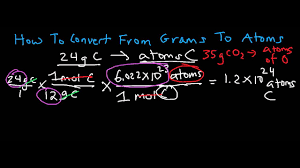 How To Convert From Grams To Atoms
24g C → atoms C 35g CO₂ → atoms of O
24g C / 1 × 1 mol C / 12 g C × 6.022 × 10²³ atoms / 1 mol C = 1.2 × 10²⁴ atoms C